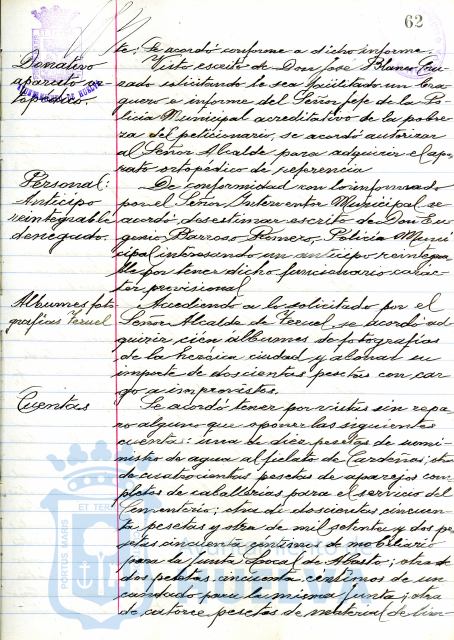 62
te; Se acordó conforme a dicho informe.
Donativo aparato ortopédico.
Visto escrito de Don José Blanco
solicitando le sea facilitado un bra-
guero e informe del Señor Jefe de la Po-
licia Municipal acreditativo de la pobre-
za del peticionario, se acordó autorizar
al Señor Alcalde para adquirir el apa-
rato ortopédico de referencia
Personal:
Anticipo
reintegrable
denegado.
De conformidad con lo informado
por el Señor Interventor Municipal se
acordó desestimar escrito de Don Eu-
genio Barroso Romero, Policia Muni-
cipal interesando un anticipo reintegra-
ble por tener dicho funcionario carac-
ter provisional
Albumes foto-
grafías Teruel
Accediendo a lo solicitado por el
Señor Alcalde de Teruel, se acordó ad-
quirir cien albumes de fotografías
de la heróica ciudad y abonar su
importe de doscientas pesetas con car-
go a imprevistos.
Cuentas
Se acordó tener por vistas sin repa-
ro alguno que oponer las siguientes
cuentas: una de diez pesetas de sumi-
nistro de agua al fielato de Cardeñas; otra
de cuatrocientas pesetas de aparejos com-
pletos de caballerías para el servicio del
Cementerio; otra de doscientas cincuen-
ta pesetas y otra de mil setenta y dos pe-
setas cincuenta centimos de mobiliario
para la Junta Local de Abasto; otra de
dos pesetas cincuenta centimos de un
candado para la misma Junta; otra
de catorce pesetas de material de lim-
PORTUS MARIS
ET TERRAE
Ayuntamiento de
HUELVA